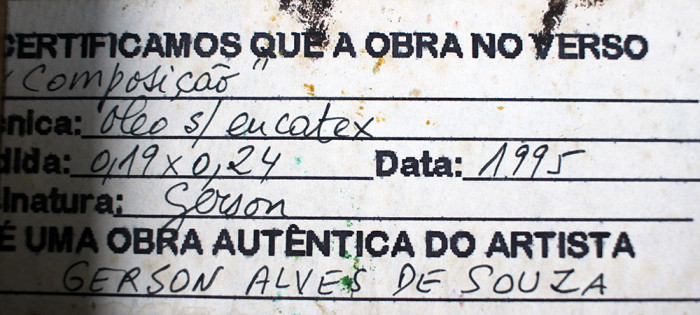 CERTIFICAMOS QUE A OBRA NO VERSO
"Composição"
nica: óleo s/ eucatex
dida: 0,19 x 0,24 Data: 1995
inatura: Gerson
É UMA OBRA AUTÊNTICA DO ARTISTA
GERSON ALVES DE SOUZA